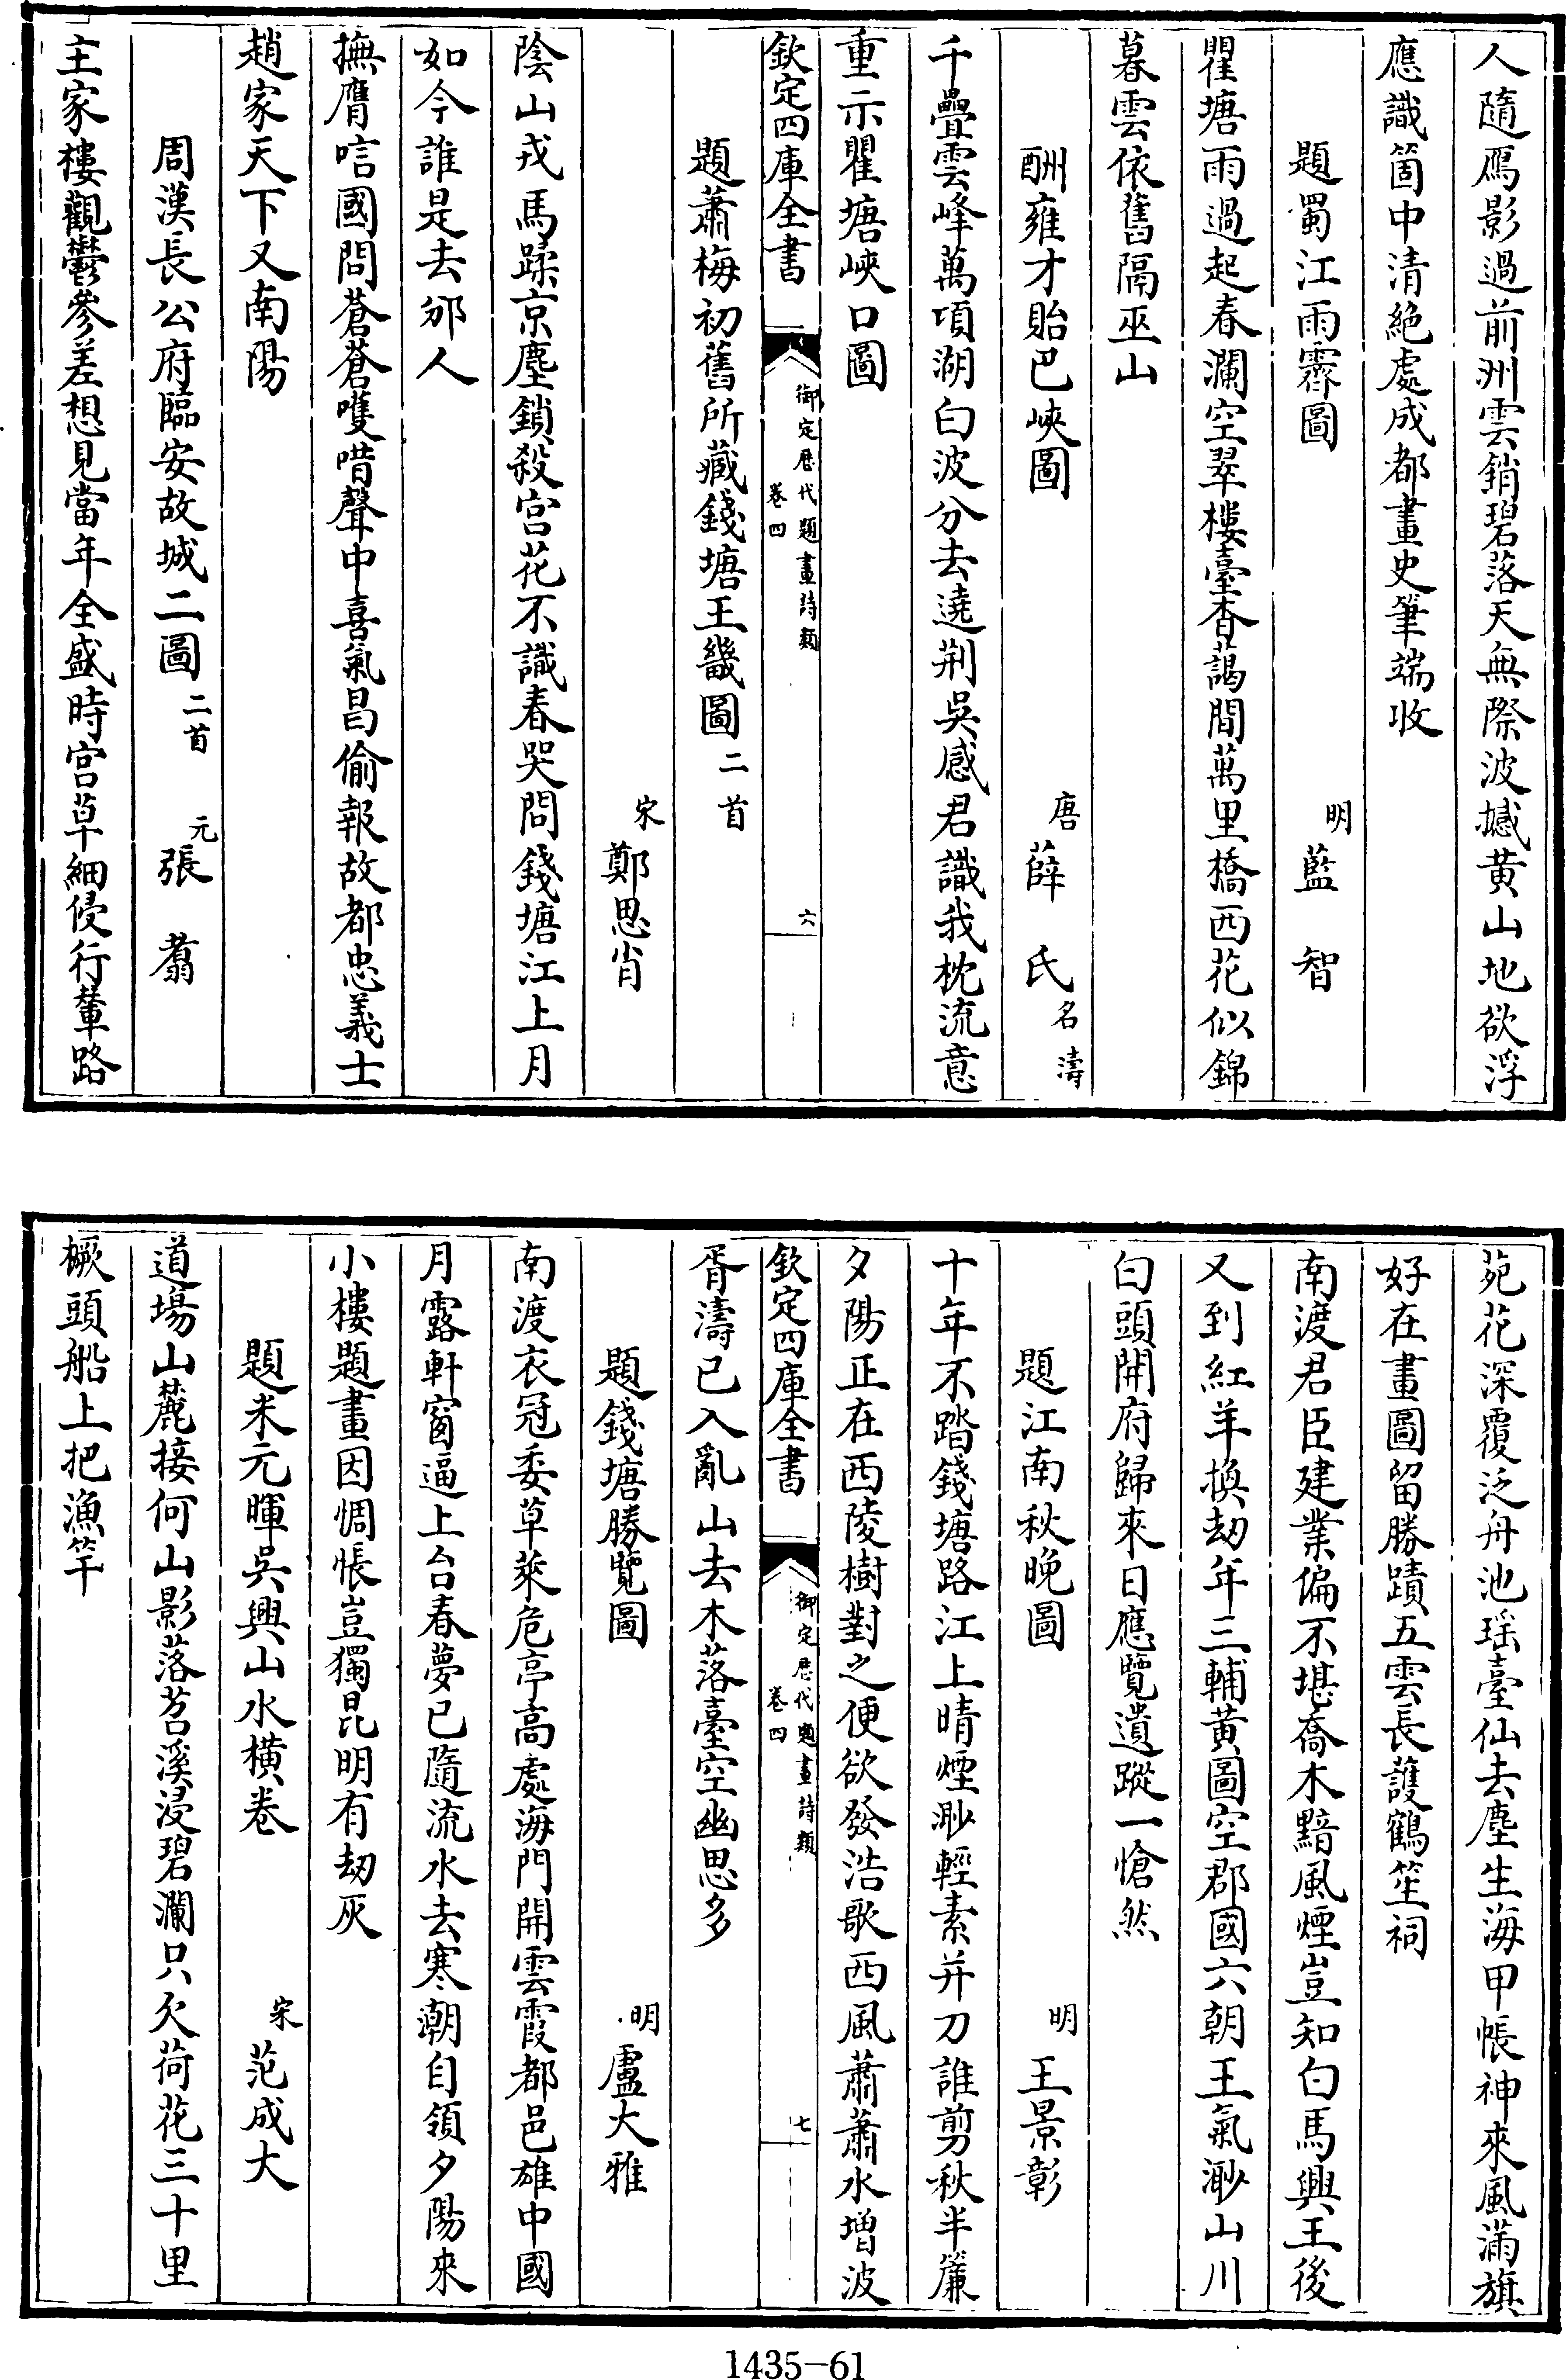 人隨鴈影過前洲雲銷碧落天無際波撼黄山地欲浮
應識箇中清絶處成都畫史筆端收
題蜀江雨霽圖
明
藍智
瞿塘雨過起春瀾空翠樓臺杳藹間萬里橋西花似錦
暮雲依舊隔巫山
酬雍才貽巴峽圖
唐
薛氏
名濤
千疊雲峰萬項湖白波分去遶荆吳感君識我枕流意
重示瞿塘峽口圖
欽定四庫全書
御定歴代題畫詩類
卷四
六
題蕭梅初舊所藏錢塘王畿圖
二首
宋
鄭思肖
陰山戎馬蹂京塵鎖殺宫花不識春哭問錢塘江上月
如今誰是去邠人
撫膺唁國問蒼蒼嘆唶聲中喜氣昌偷報故都忠義士
趙家天下又南陽
周漢長公府臨安故城二圖
二首
元
張翥
主家樓觀鬱參差想見當年全盛時宫草細侵行輦路
苑花深覆泛舟池瑶臺仙去塵生海甲帳神來風滿旗
好在畫圖留勝蹟五雲長護鶴笙祠
南渡君臣建業偏不堪喬木黯風煙豈知白馬興王後
又到紅羊換劫年三輔黄圖空郡國六朝王氣渺山川
白頭開府歸來日應覽遺蹤一愴然
題江南秋晚圖
明
王景彰
十年不踏錢塘路江上晴煙渺輕素并刀誰剪秋半簾
夕陽正在西陵樹對之便欲發浩歌西風蕭蕭水增波
欽定四庫全書
御定歴代題畫詩類
卷四
七
胥濤已入亂山去木落臺空幽思多
題錢塘勝覽圖
明
盧大雅
南渡衣冠委草萊危亭高處海門開雲霞都邑雄中國
月露軒窗逼上台春夢已隨流水去寒潮自領夕陽來
小樓題畫因惆悵豈獨昆明有刼灰
題米元暉吳興山水橫卷
宋
范成大
道塲山麓接何山影落苕溪浸碧瀾只欠荷花三十里
橛頭船上把漁竿
1435-61